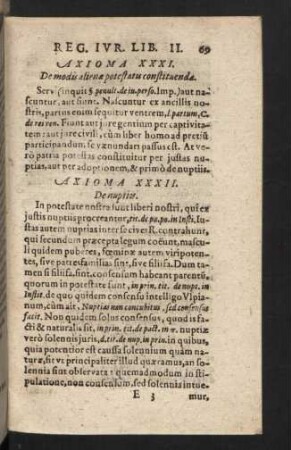 REG. IVR. LIB. II. 69
AXIOMA XXXI.
De modis alienæ potestatis constituendæ.
Servi (inquit §. penult. de iu. perso. Imp.) aut na-
scuntur, aut fiunt. Nascuntur ex ancillis no-
stris, partus enim sequitur ventrem, l. partum, C.
de rei ven. Fiunt aut jure gentium per captivita-
tem: aut jure civili, cùm liber homo ad pretiū
participandum, se venundari passus est. At ve-
rò patria potestas constituitur per justas nu-
ptias, aut per adoptionem, & primò de nuptiis.
AXIOMA XXXII.
De nuptiis.
In potestate nostra sunt liberi nostri, qui ex
justis nuptiis procreantur, tit. de pa. po. in Insti. Iu-
stas autem nuptias inter se cives R. contrahunt,
qui secundum præcepta legum coëunt, mascu-
li quidem puberes, fœminæ autem viripotentes,
sive patresfamilias sint, sive filiifa. Dum ta-
men si filiifa. sint, consensum habeant parentū,
quorum in potestate sunt, in prin. tit. de nupt. in
Instit. de quo quidem consensu intelligo Vlpia-
num, cùm ait. Nuptias non concubitus, sed consensus
facit. Non quidem solus consensus, quod is fa-
cti & naturalis sit, in prim. tit. de pact. in ff. nuptiæ
verò solennis juris, d. tit. de nup. in prin. in quibus,
quia potentior est causa solennium quàm na-
turæ, sit vt principaliter illud quæramus, an so-
lennia sint observata: quemadmodum in sti-
pulatione, non consensum, sed solennia intue-
E 3 mur,